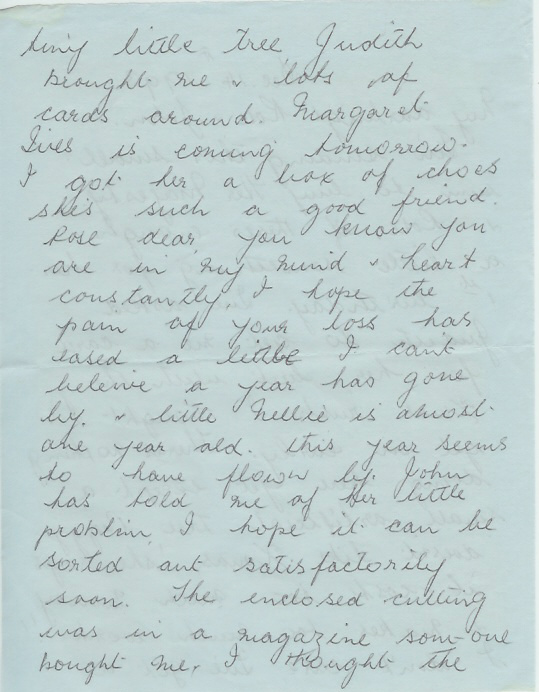 tiny little tree Judith
brought me & lots of
cards around. Margaret
Ives is coming tomorrow.
I got her a box of chocs
she's such a good friend.
Rose dear, you know you
are in my mind & heart
constantly, I hope the
pain of your loss has
eased a little I cant
beleive a year has gone
by. & little Nellie is amost
one year old. this year seems
to have flown by. John
has told me of her little
problem, I hope it can be
sorted out satisfactority
soon. The enclosed cutting
was in a magazine som-one
bought me, I thought the